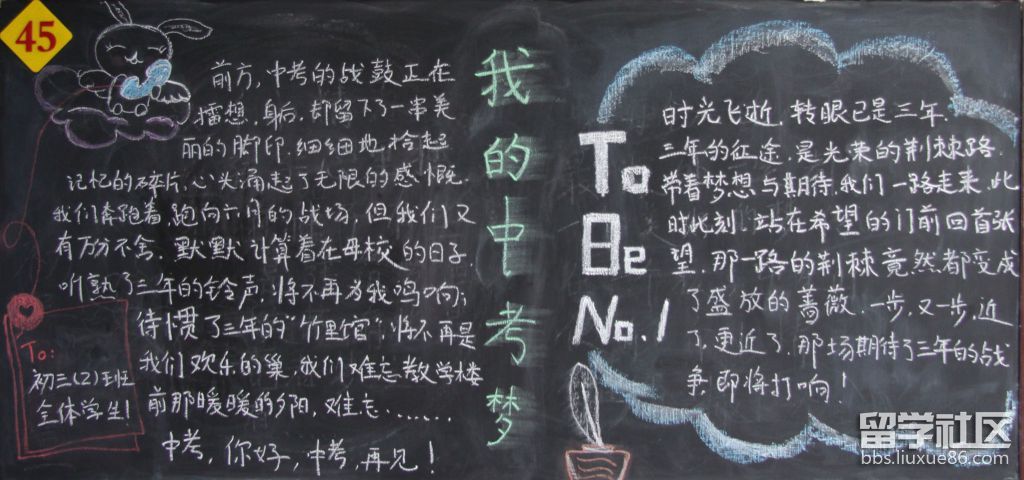 45
前方,中考的战鼓正在
擂想.身后,却留下了一串美
丽的脚印.细细地,拾起
记忆的碎片,心头涌起了无限的感慨.
我们奔跑着,跑向六月的战场,但我们又
有万分不舍.默默计算着在母校的日子.
听熟了三年的铃声,将不再为我鸣响;
待惯了三年的“竹里馆”,将不再是
我们欢乐的巢,我们难忘教学楼
前那暖暖的夕阳,难忘.......
中考,你好,中考,再见!
To:
初三(2)班
全体学生!
我的中考梦
To
Be
No.1
时光飞逝,转眼已是三年.
三年的征途,是光荣的荆棘路.
带着梦想与期待,我们一路走来,此
时此刻.站在希望的门前回首张
望,那一路的荆棘竟然都变成
了盛放的蔷薇.一步,又一步,近
了,更近了,那场期待了三年的战
争,即将打响!
留学社区
bbs.liuxue86.com